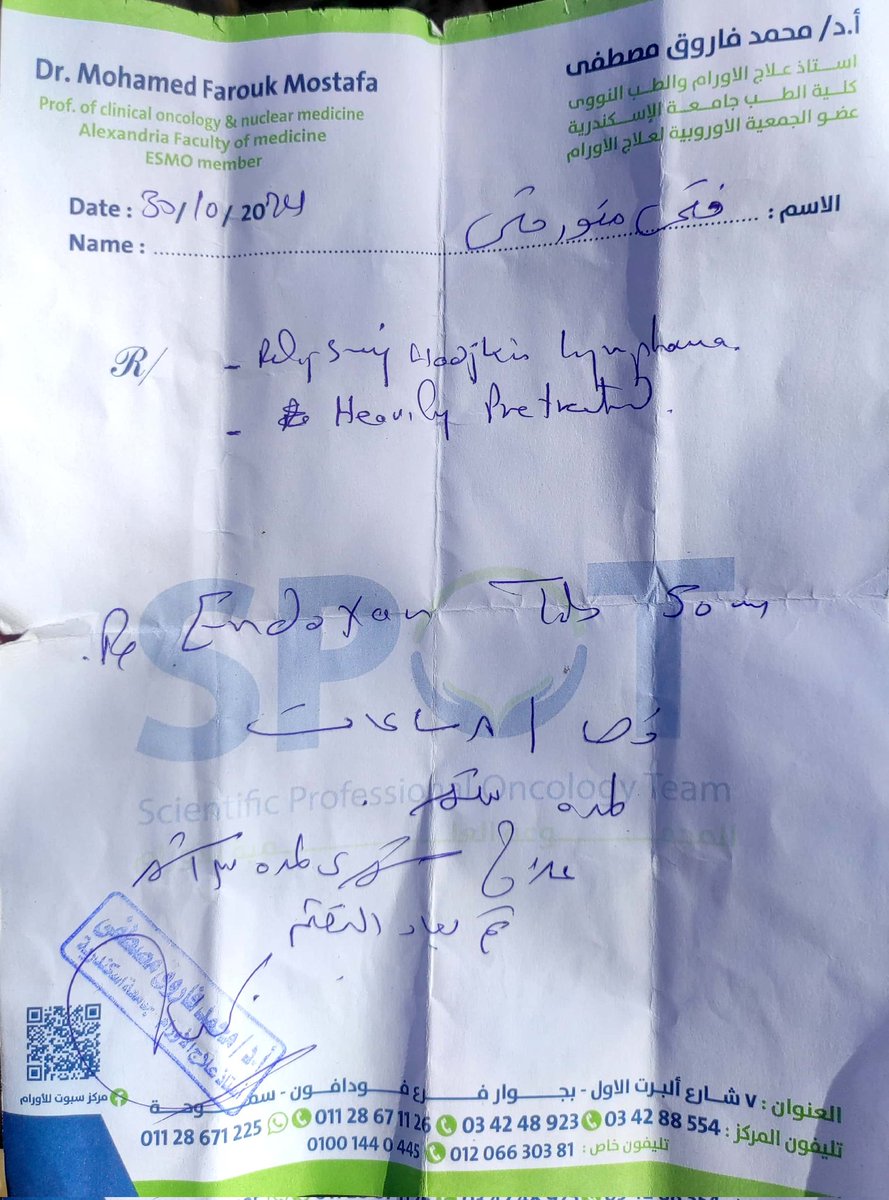 Dr. Mohamed Farouk Mostafa
Prof. of clinical oncology & nuclear medicine
Alexandria Faculty of medicine
ESMO member
أ.د/ محمد فاروق مصطفى
استاذ علاج الاورام والطب النووى
كلية الطب جامعة الإسكندرية
عضو الجمعية الاوروبية لعلاج الأورام
Date : 30/10/2024
الاسم :
Name :
R/
- Hodgkin lymphoma.
- Heavily Pretreated.
Re Endoxan Tab 50 mg
قرص / ٨ ساعات
لمدة شهر
علاج شهرى لمدة ٣ أشهر
ثم يعاد التقييم
SPOT
Scientific Professional Oncology Team
أ.د/ محمد فاروق مصطفى
مركز سبوت للأورام
العنوان : ٧ شارع ألبرت الاول - بجوار فرع فودافون - سموحة
تليفون المركز : 03 42 88 554 03 42 48 923 011 28 67 11 26 011 28 671 225
تليفون خاص : 012 066 303 81 0100 144 0 445